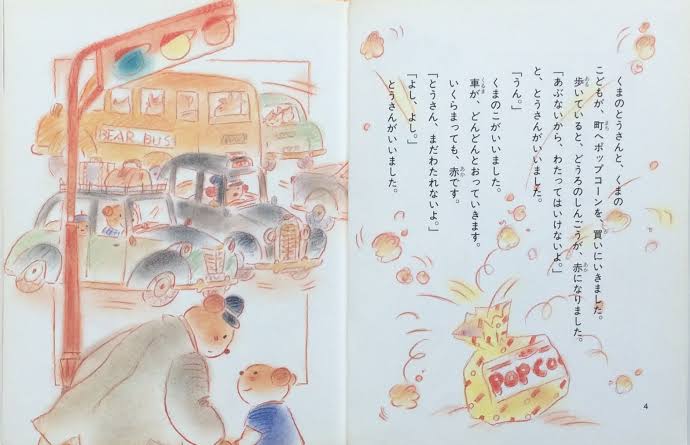 くまのとうさんと、くまの
こどもが、町へポップコーンを、買いにいきました。
歩いていると、どうろのしんごうが、赤になりました。
「あぶないから、わたってはいけないよ。」
と、とうさんがいいました。
「うん。」
くまのこがいいました。
車が、どんどんとおっていきます。
いくらまっても、赤です。
「とうさん、まだわたれないよ。」
「よし、よし。」
とうさんがいいました。
BEAR BUS
POPCO
4